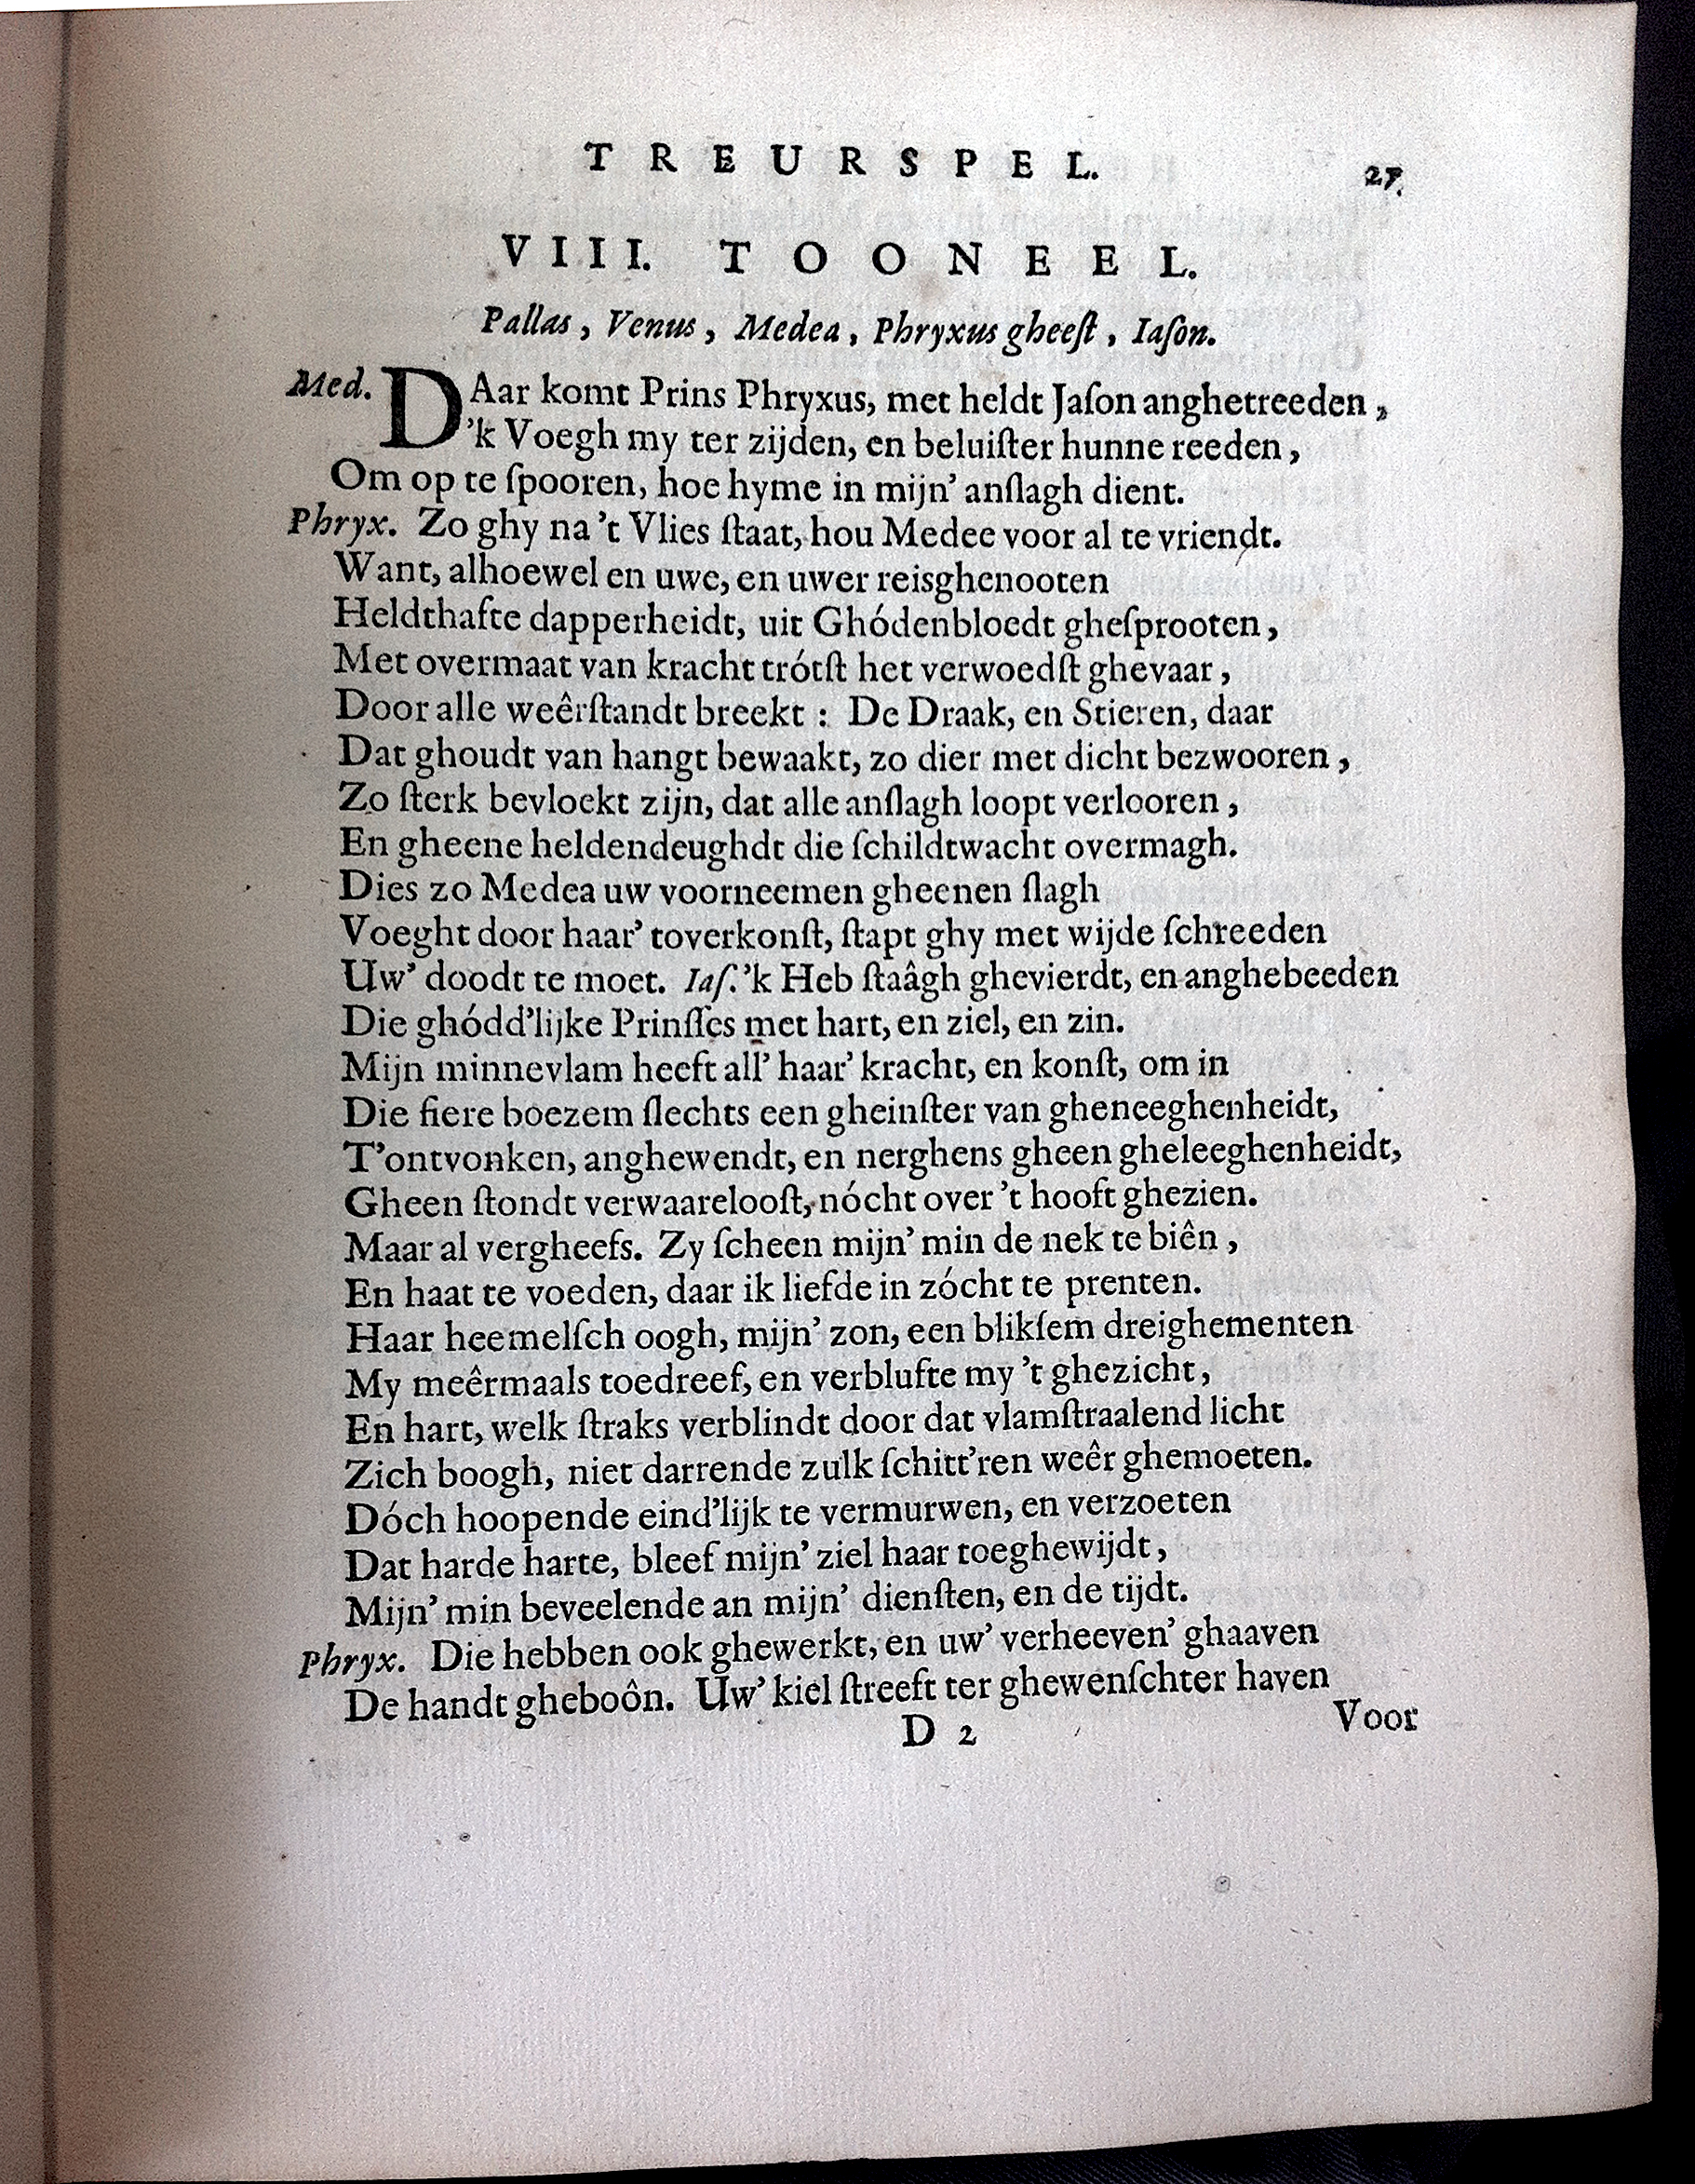 TREURSPEL. 27.
VIII. TOONEEL.
Pallas, Venus, Medea, Phryxus gheeſt, Iaſon.
Med. DAar komt Prins Phryxus, met heldt Jaſon anghetreeden,
'k Voegh my ter zijden, en beluiſter hunne reeden,
Om op te ſpooren, hoe hyme in mijn' anſlagh dient.
Phryx. Zo ghy na 't Vlies ſtaat, hou Medee voor al te vriendt.
Want, alhoewel en uwe, en uwer reisghenooten
Heldthafte dapperheidt, uit Ghódenbloedt gheſprooten,
Met overmaat van kracht trótſt het verwoedſt ghevaar,
Door alle weêrſtandt breekt : De Draak, en Stieren, daar
Dat ghoudt van hangt bewaakt, zo dier met dicht bezwooren,
Zo ſterk bevloekt zijn, dat alle anſlagh loopt verlooren,
En gheene heldendeughdt die ſchildtwacht overmagh.
Dies zo Medea uw voorneemen gheenen ſlagh
Voeght door haar' toverkonſt, ſtapt ghy met wijde ſchreeden
Uw' doodt te moet. Iaſ. 'k Heb ſtaâgh ghevierdt, en anghebeeden
Die ghódd'lijke Prinſſes met hart, en ziel, en zin.
Mijn minnevlam heeft all' haar' kracht, en konſt, om in
Die fiere boezem ſlechts een gheinſter van gheneeghenheidt,
T'ontvonken, anghewendt, en nerghens gheen gheleeghenheidt,
Gheen ſtondt verwaarelooſt, nócht over 't hooft ghezien.
Maar al vergheefs. Zy ſcheen mijn' min de nek te biên,
En haat te voeden, daar ik liefde in zócht te prenten.
Haar heemelſch oogh, mijn' zon, een blikſem dreighementen
My meêrmaals toedreef, en verblufte my 't ghezicht,
En hart, welk ſtraks verblindt door dat vlamſtraalend licht
Zich boogh, niet darrende zulk ſchitt'ren weêr ghemoeten.
Dóch hoopende eind'lijk te vermurwen, en verzoeten
Dat harde harte, bleef mijn' ziel haar toeghewijdt,
Mijn' min beveelende an mijn' dienſten, en de tijdt.
Phryx. Die hebben ook ghewerkt, en uw' verheeven' ghaaven
De handt gheboôn. Uw' kiel ſtreeft ter ghewenſchter haven
D 2 Voor